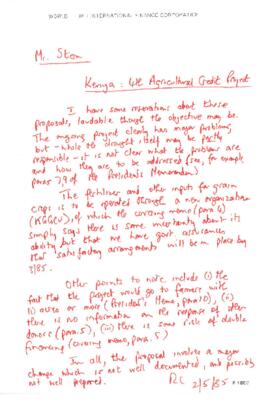 WORLD / INTERNATIONAL FINANCE CORPORATION
Mr. Stern
Kenya: 4th Agricultural Credit Project
I have some reservations about these
proposals, laudable though the objective may be.
The ongoing project clearly has major problems,
but - while the drought itself may be partly
responsible - it is not clear what the problems are
and how they are to be addressed (see, for example
paras 7,9 of the President's Memorandum)
The fertilizer and other inputs for grain
crops is to be operated through a new organization
(KGGCU), of which the covering memo (para 4)
simply says there is some uncertainty about its
ability but that we have govt. assurances
that satisfactory arrangements will be in place by
3/85.
Other points to note include (i) the
fact that the project would go to farmers with
10 acres or more (President's Memo, para 10), (ii)
there is no information on the response of other
donors (para. 5), (iii) there is some risk of double
financing (covering memo, para. 5)
In all, the proposal involves a major
change which is not well documented, and possibly
not well prepared.
2/5/85